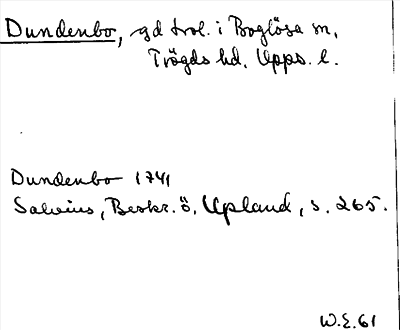 Dundenbo, gd trol. i Boglösa sn,
Trögds hd. Upps. l.
Dundenbo 1741
Salvius, Beskr. ö. Upland, s. 265.
W.E. 61